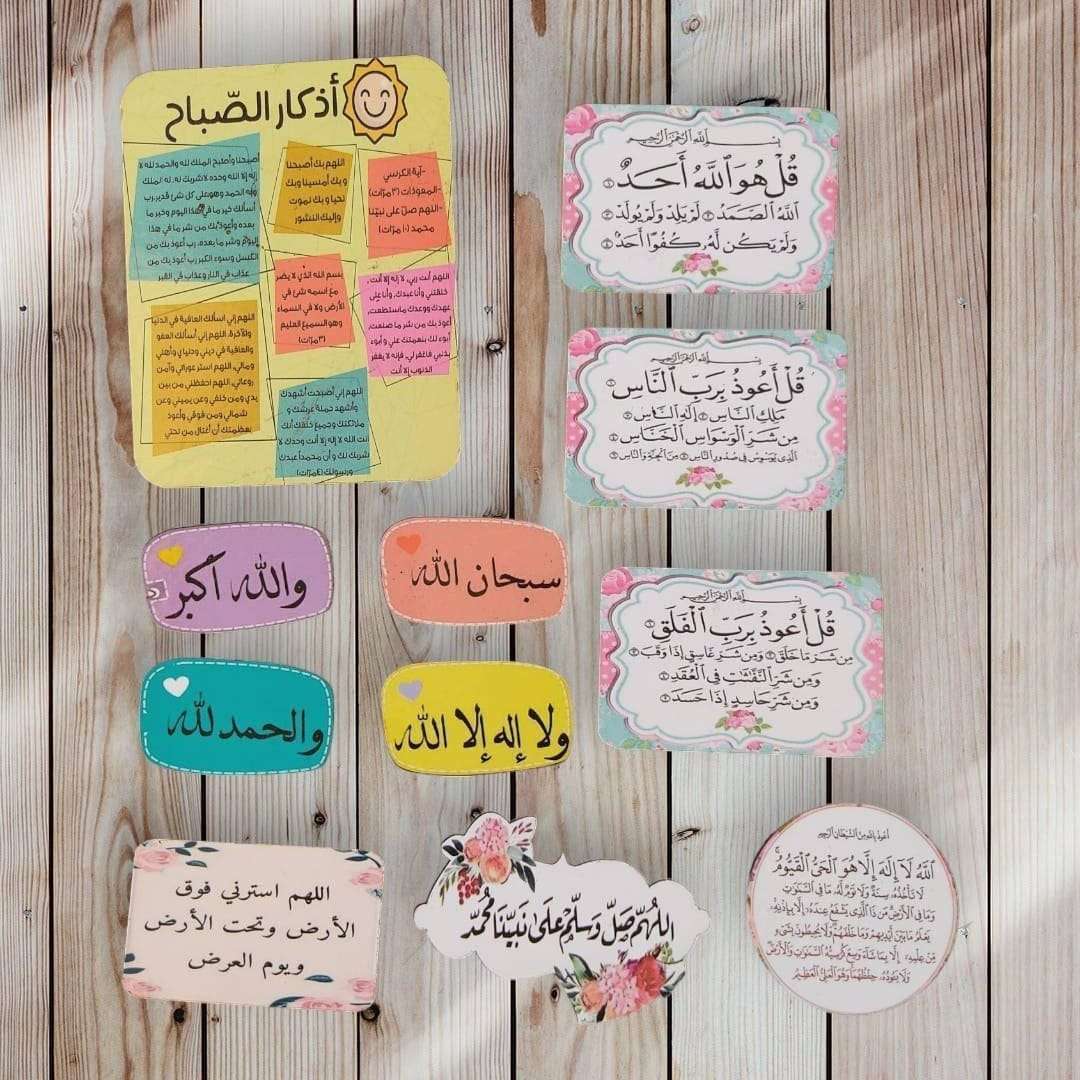 أذكار الصّباح
-آية الكرسي
-المعوذات (٣مرّات)
-اللهم صلّ على نبيّنا
محمد (١٠ مرّات)
اللهم بك أصبحنا
و بك أمسينا وبك
نحيا و بك نموت
وإليك النشور
أصبحنا وأصبح الملك لله والحمد لله لا
إله إلا الله وحده لاشريك له، له الملك
وله الحمد وهو على كل شئ قدير،رب
أسألك خير ما في هذا اليوم وخير ما
بعده وأعوذ بك من شر ما في هذا
اليوم وشر ما بعده، رب أعوذ بك من
الكسل وسوء الكبر رب أعوذ بك من
عذاب في النار وعذاب في القبر
اللهم أنت ربي، لا إله إلا أنت،
خلقتني وأنا عبدك، وأنا على
عهدك ووعدك ماستطعت،
أعوذ بك من شر ما صنعت،
أبوء لك بنعمتك علي و أبوء
بذنبي فاغفر لي، فإنه لا يغفر
الذنوب إلا أنت
بسم الله الذي لا يضر
مع اسمه شئ في
الأرض ولا في السماء
وهو السميع العليم
(٣مرّات)
اللهم إني اسألك العافية في الدنيا
والآخرة، اللهم إني أسألك العفو
والعافية في ديني ودنياي وأهلي
ومالي، اللهم استر عوراتي وأمن
روعاتي، اللهم احفظني من بين
يدي ومن خلفي وعن يميني وعن
شمالي ومن فوقي وأعوذ
بعظمتك أن أغتال من تحتي
اللهم إني أصبحت أشهدك
وأشهد حملة عرشك و
ملائكتك وجميع خلقك أنك
أنت الله لا إله إلا أنت وحدك لا
شريك لك و أن محمداً عبدك
ورسولك (٤مرّات)
بِسْمِ ٱللَّهِ ٱلرَّحْمَٰنِ ٱلرَّحِيمِ
قُلْ هُوَ ٱللَّهُ أَحَدٌ ①
ٱللَّهُ ٱلصَّمَدُ ② لَمْ يَلِدْ وَلَمْ يُولَدْ ③
وَلَمْ يَكُن لَّهُۥ كُفُوًا أَحَدٌ ④
بِسْمِ ٱللَّهِ ٱلرَّحْمَٰنِ ٱلرَّحِيمِ
قُلْ أَعُوذُ بِرَبِّ ٱلنَّاسِ ①
مَلِكِ ٱلنَّاسِ ② إِلَٰهِ ٱلنَّاسِ ③
مِن شَرِّ ٱلْوَسْوَاسِ ٱلْخَنَّاسِ ④
ٱلَّذِى يُوَسْوِسُ فِى صُدُورِ ٱلنَّاسِ ⑤ مِنَ ٱلْجِنَّةِ وَٱلنَّاسِ ⑥
بِسْمِ ٱللَّهِ ٱلرَّحْمَٰنِ ٱلرَّحِيمِ
قُلْ أَعُوذُ بِرَبِّ ٱلْفَلَقِ ①
مِن شَرِّ مَا خَلَقَ ② وَمِن شَرِّ غَاسِقٍ إِذَا وَقَبَ ③
وَمِن شَرِّ ٱلنَّفَّٰثَٰتِ فِى ٱلْعُقَدِ ④
وَمِن شَرِّ حَاسِدٍ إِذَا حَسَدَ ⑤
سبحان الله
والله أكبر
ولا إله إلا الله
والحمد لله
أعوذ بالله من الشيطان الرجيم
ٱللَّهُ لَآ إِلَٰهَ إِلَّا هُوَ ٱلْحَىُّ ٱلْقَيُّومُ ۚ
لَا تَأْخُذُهُۥ سِنَةٌ وَلَا نَوْمٌ لَّهُۥ مَا فِى ٱلسَّمَٰوَٰتِ
وَمَا فِى ٱلْأَرْضِ مَن ذَا ٱلَّذِى يَشْفَعُ عِندَهُۥٓ إِلَّا بِإِذْنِهِۦ
يَعْلَمُ مَا بَيْنَ أَيْدِيهِمْ وَمَا خَلْفَهُمْ وَلَا يُحِيطُونَ بِشَىْءٍ
مِّنْ عِلْمِهِۦٓ إِلَّا بِمَا شَآءَ وَسِعَ كُرْسِيُّهُ ٱلسَّمَٰوَٰتِ وَٱلْأَرْضَ
وَلَا يَـُٔودُهُۥ حِفْظُهُمَا وَهُوَ ٱلْعَلِىُّ ٱلْعَظِيمُ
اللهُمَّ صَلِّ وَسَلِّمْ عَلَى نَبِيِّنَا مُحَمَّد
اللهم استرني فوق
الأرض وتحت الأرض
ويوم العرض